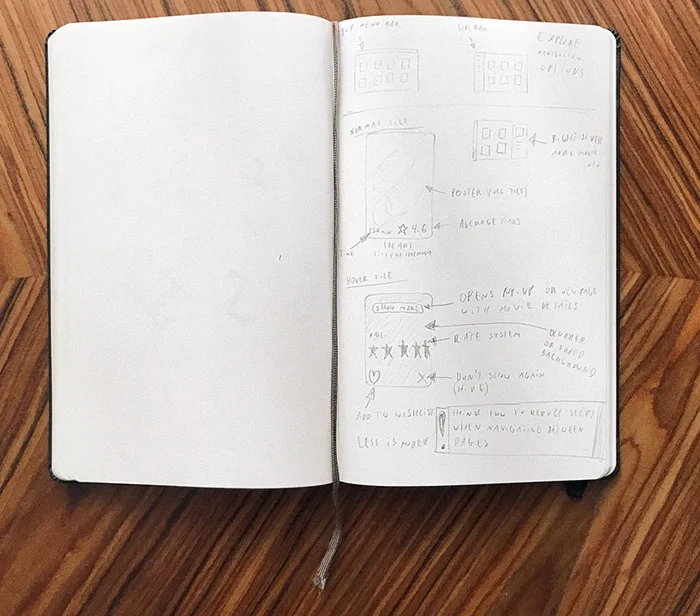 TOP MENU BAR
SIDEBAR
EXPLORE
NAVIGATION
OPTIONS
NORMAL TILE
RIGHT SIDEBAR
MORE MOVIE
INFO
POSTER (FULL TILE)
4.6
AVERAGE STARS
TIME
(YEAR)
HOVER TILE
SHOW MORE
OPENS POP-UP OR NEW PAGE
WITH MOVIE DETAILS
RATE SYSTEM
BLURRED
OR FADED
BACKGROUND
DON'T SHOW AGAIN
(HIDE)
ADD TO WISHLIST
LESS IS MORE!
! THINK HOW TO REDUCE STEPS
WHEN NAVIGATING BETWEEN
PAGES